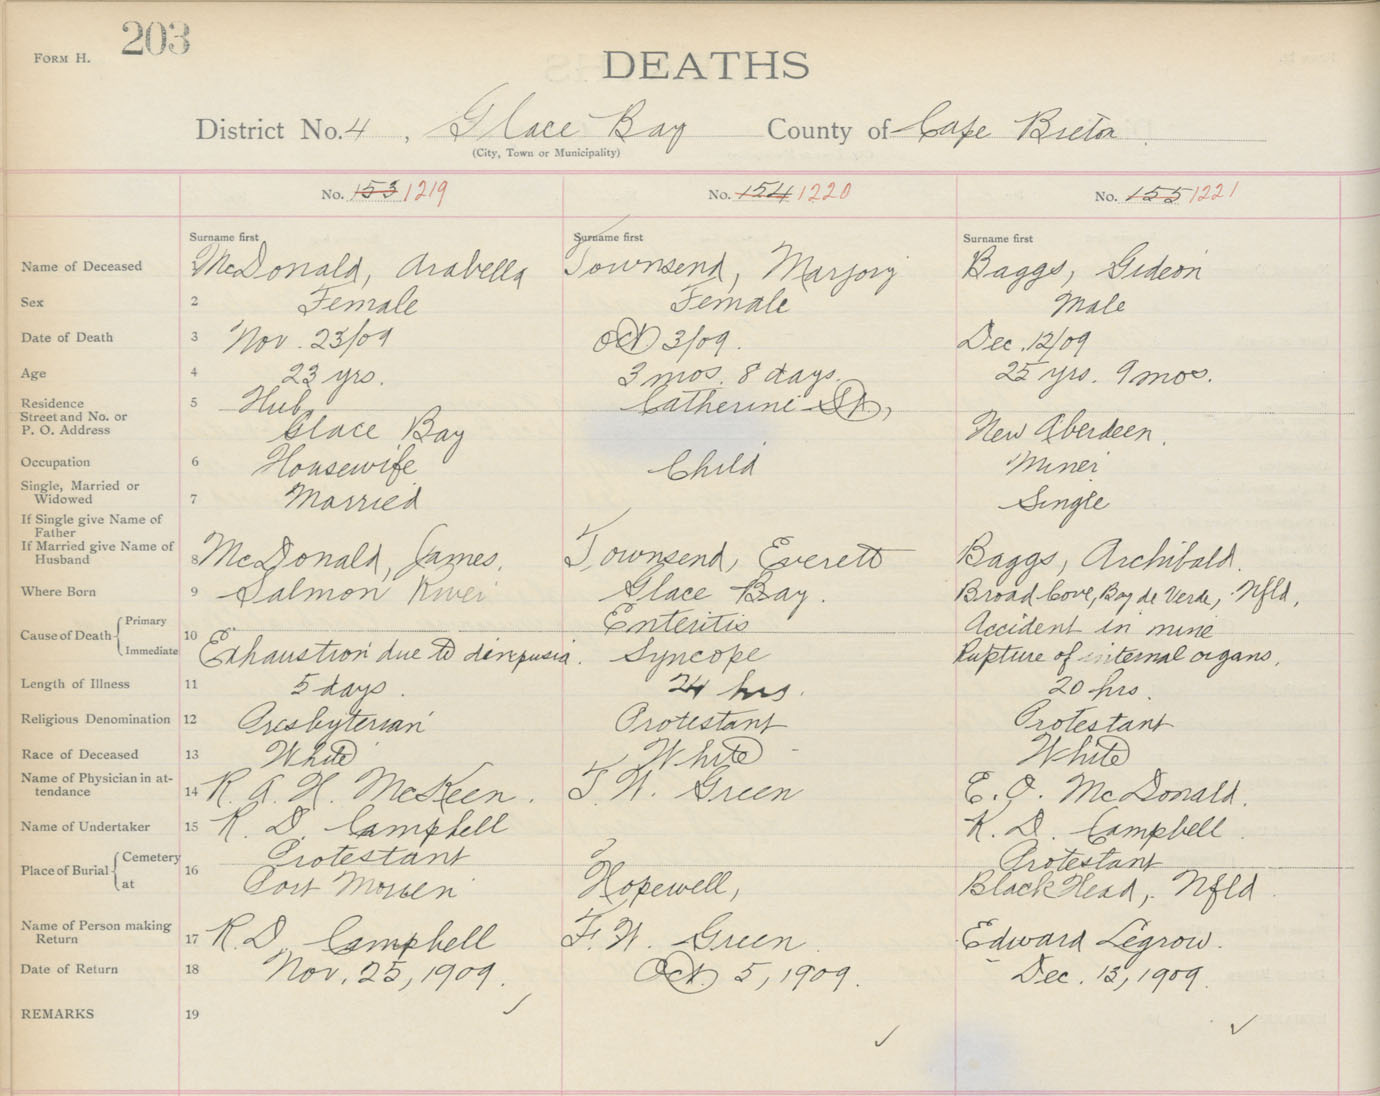 203
FORM H.
DEATHS
District No. 4, Glace Bay County of Cape Breton
(City, Town or Municipality)
No. 153 1219 No. 154 1220 No. 155 1221
Surname first Surname first Surname first
Name of Deceased McDonald, Arabella Townsend, Marjory Baggs, Gideon
Sex 2 Female Female Male
Date of Death 3 Nov. 23/09 Oct 3/09. Dec. 12/09
Age 4 23 yrs. 3 mos. 8 days. 25 yrs. 9 mos.
Residence 5 Hub, Catherine St,
Street and No. or
P. O. Address Glace Bay New Aberdeen.
Occupation 6 Housewife Child Miner
Single, Married or
Widowed 7 Married Single
If Single give Name of
Father
If Married give Name of
Husband 8 McDonald, James. Townsend, Everett Baggs, Archibald.
Where Born 9 Salmon River Glace Bay. Broad Cove, Bay de Verde, Nfld.
Cause of Death Primary Enteritis Accident in mine
10
Immediate Exhaustion due to Syncope Rupture of internal organs.
Length of Illness 11 5 days. 24 hrs. 20 hrs.
Religious Denomination 12 Presbyterian Protestant Protestant
Race of Deceased 13 White White White
Name of Physician in at-
tendance 14 R. A. H. McKeen. F. W. Green E. O. McDonald.
Name of Undertaker 15 R. D. Campbell R. D. Campbell.
Place of Burial Cemetery Protestant Protestant
16
at Port Morien Hopewell, Black Head, Nfld.
Name of Person making
Return 17 R. D. Campbell F. W. Green. Edward Legrow.
Date of Return 18 Nov. 25, 1909. Oct. 5, 1909. Dec. 13, 1909.
REMARKS 19